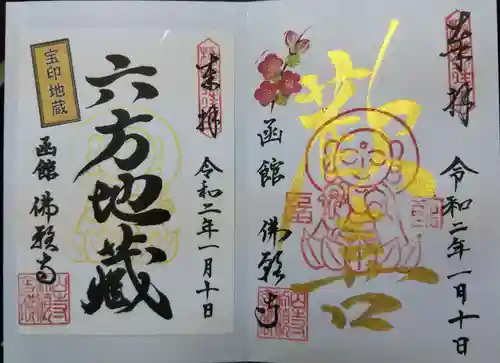 奉拝
令和二年一月十日
函館 佛願寺
奉拝
令和二年一月十日
六方地蔵
宝印地蔵
函館 佛願寺